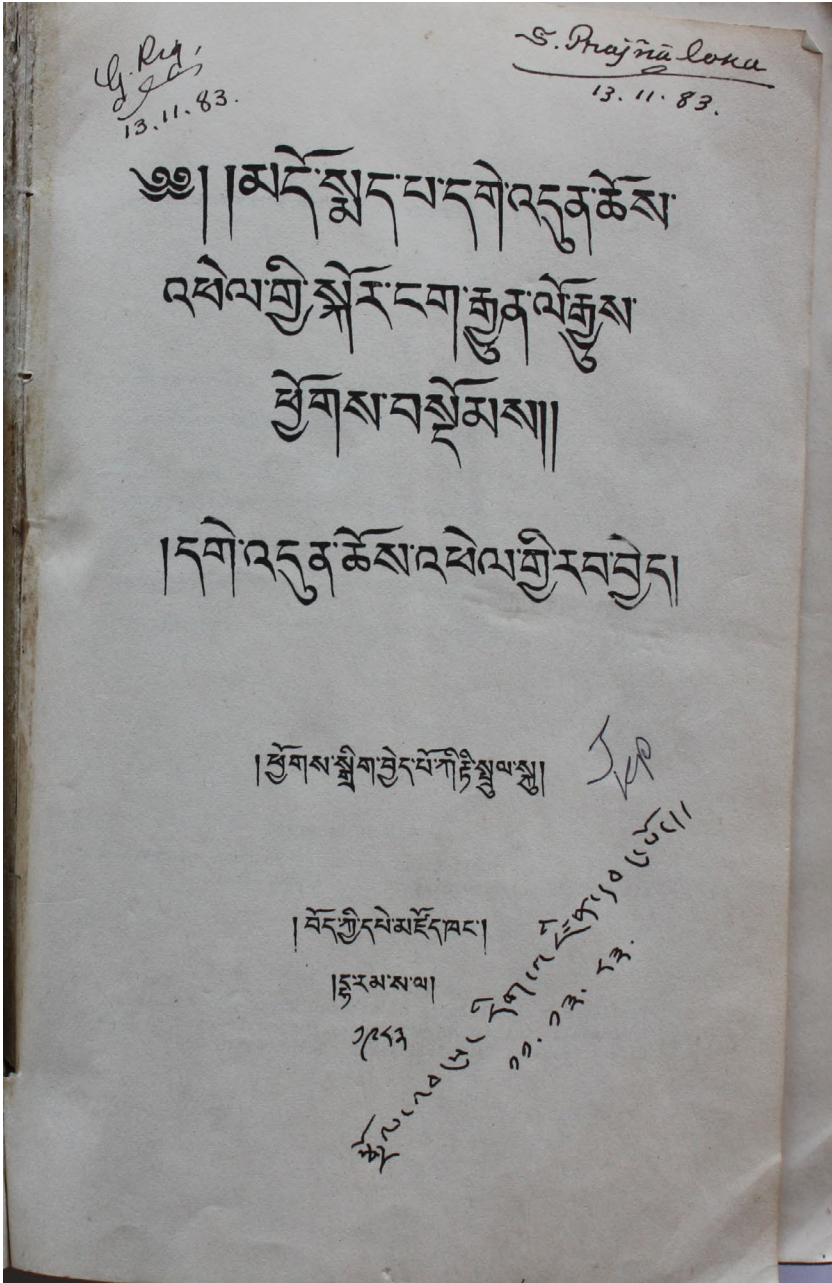 G. Rig,
13.11.83.
S. Prajñāloka
13.11.83.
༄༅། །མདོ་སྨད་པ་དགེ་འདུན་ཆོས་
འཕེལ་གྱི་སྐོར་ངག་རྒྱུན་ལོ་རྒྱུས་
ཕྱོགས་བསྡོམས།།
།དགེ་འདུན་ཆོས་འཕེལ་གྱི་རབ་བྱེད།
།ཕྱོགས་སྒྲིག་བྱེད་པོ་ཀིརྟི་སྤྲུལ་སྐུ།
།བོད་ཀྱི་དཔེ་མཛོད་ཁང་།
།དྷ་རམ་ས་ལ།
༡༩༨༣
༡༡.༡༣.༨༣.